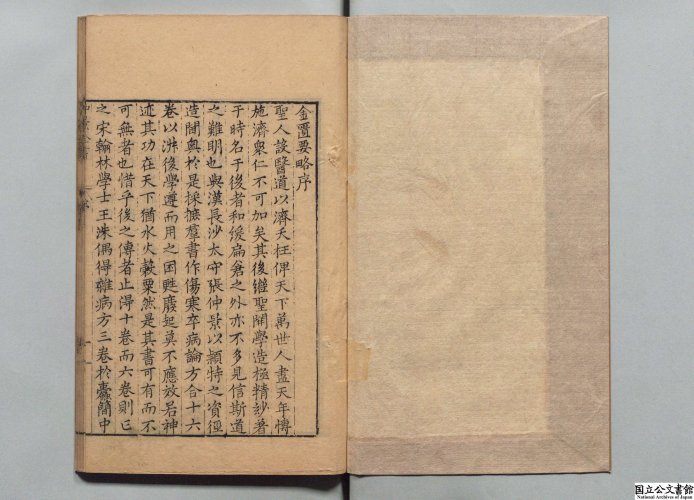 金匱要略序
聖人設醫道以濟夭枉俾天下萬世人盡天年博
施濟衆仁不可加矣其後繼聖開學造極精妙著
于時名于後者和緩扁倉之外亦不多見信斯道
之難明也與漢長沙太守張仲景以穎特之資徑
造閫奧於是採摭羣書作傷寒卒病論方合十六
卷以淑後學遵而用之困甦廢起莫不應效若神
迹其功在天下猶水火穀粟然是其書可有而不
可無者也惜乎後之傳者止得十卷而六卷則亡
之宋翰林學士王洙偶得雜病方三卷於蠹簡中
国立公文書館
National Archives of Japan